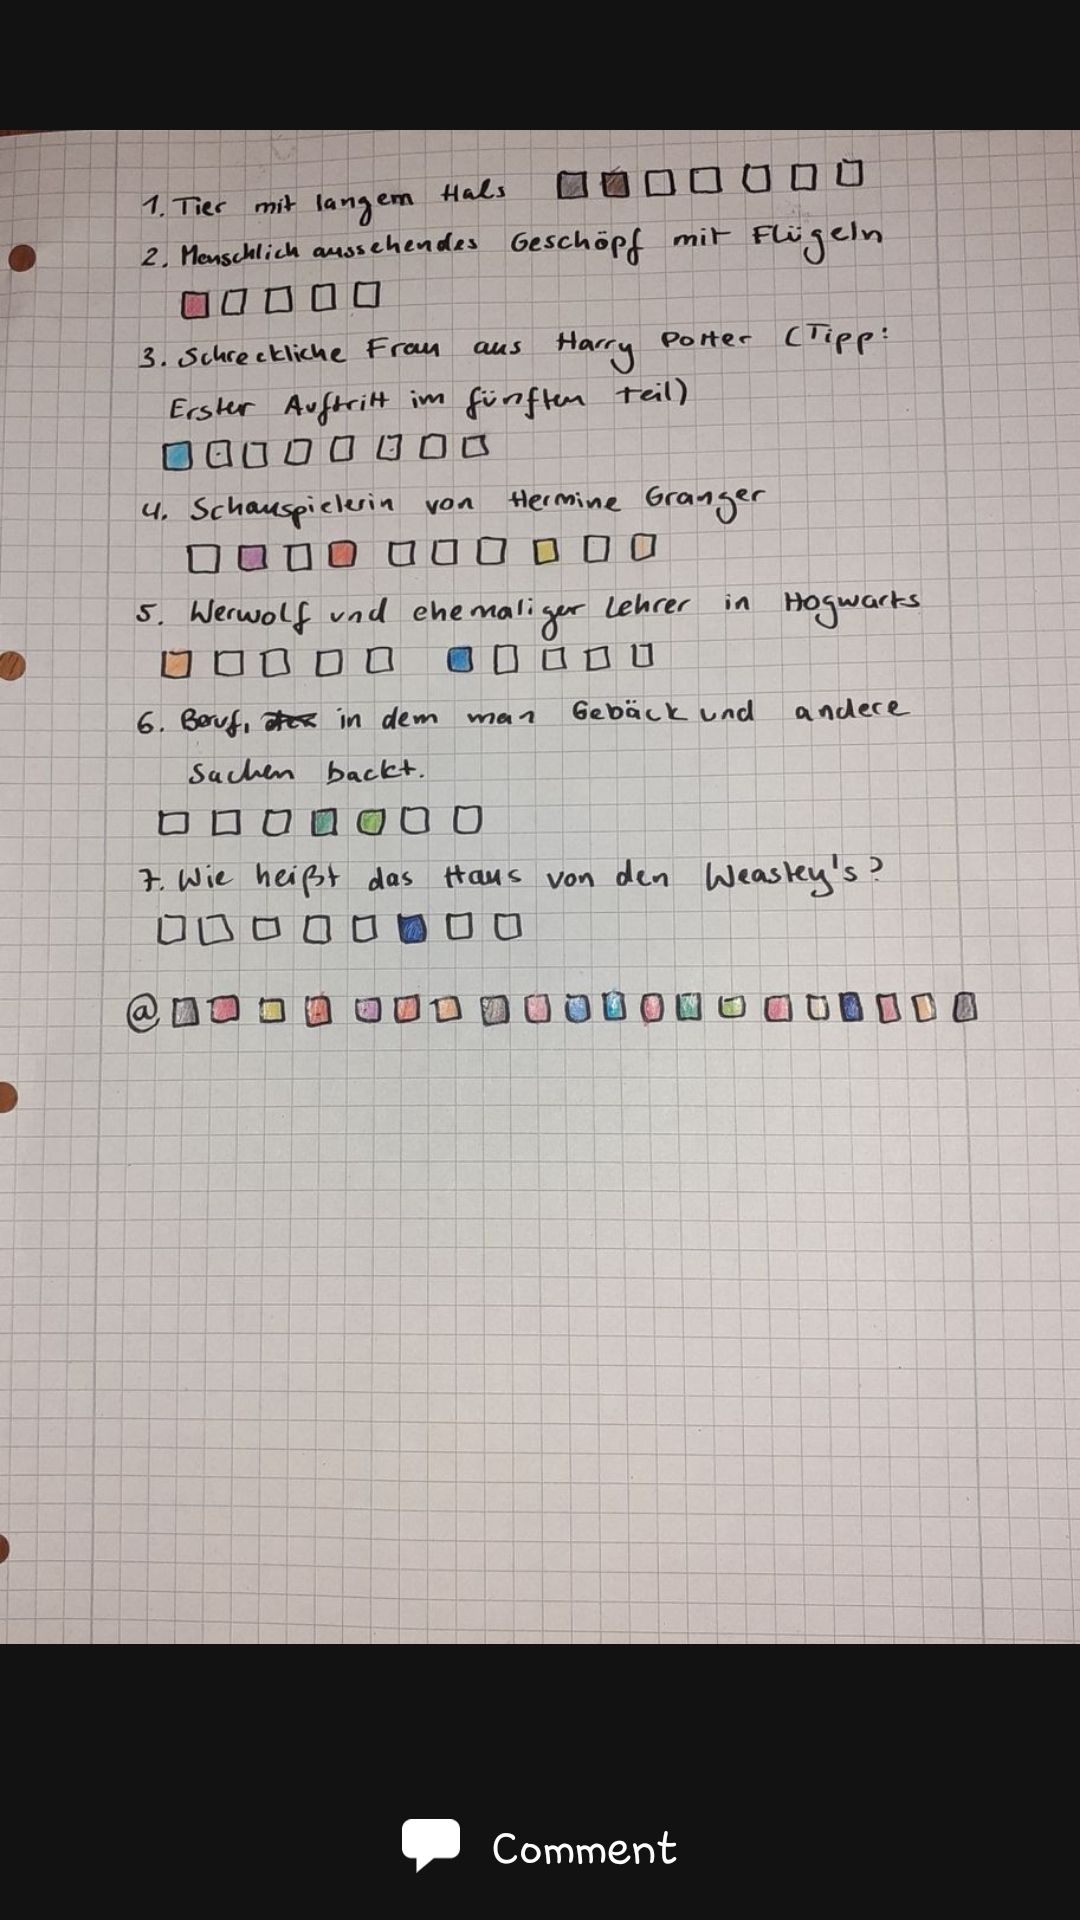 1. Tier mit langem Hals
2. Menschlich aussehendes Geschöpf mit Flügeln
3. Schreckliche Frau aus Harry Potter (Tipp:
Erster Auftritt im fünften Teil)
4. Schauspielerin von Hermine Granger
5. Werwolf und ehemaliger Lehrer in Hogwarts
6. Beruf, in dem man Gebäck und andere
Sachen backt.
7. Wie heißt das Haus von den Weasley's?
@
Comment